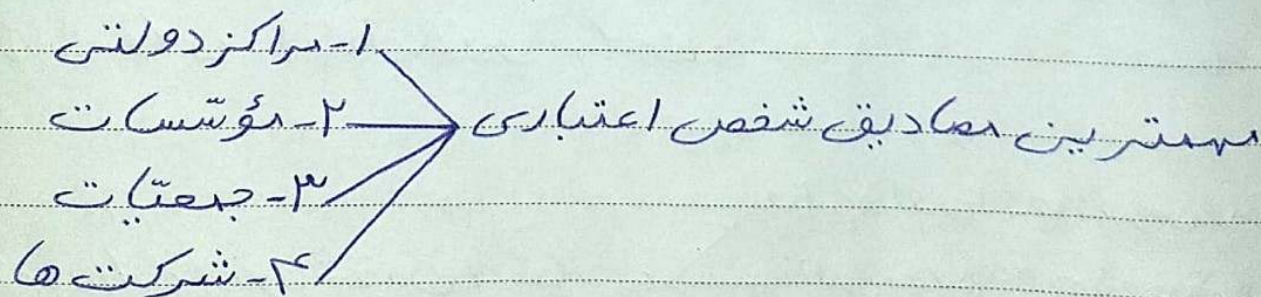 مهمترین مصادیق شخص اعتباری
۱- مراکز دولتی
۲- مؤسّسات
۳- جمعیّات
۴- شرکت ها